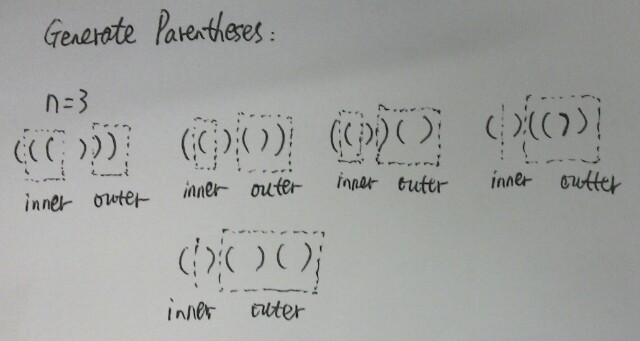 Generate Parentheses:
n=3
((( ))) (( )( )) (( ))( ) ( )(( ))
inner outer inner outer inner outer inner outter
( )( )( )
inner outer